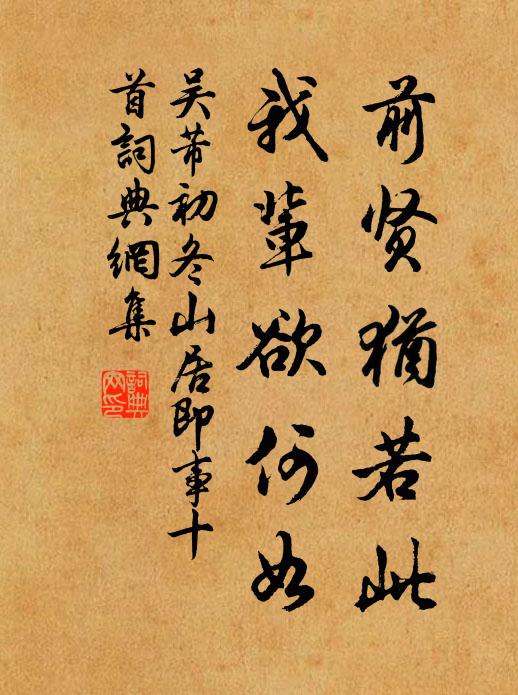 前贤犹若此
我辈欲何如
吴芾初冬山居即事十
首詞典網集
詞典網印